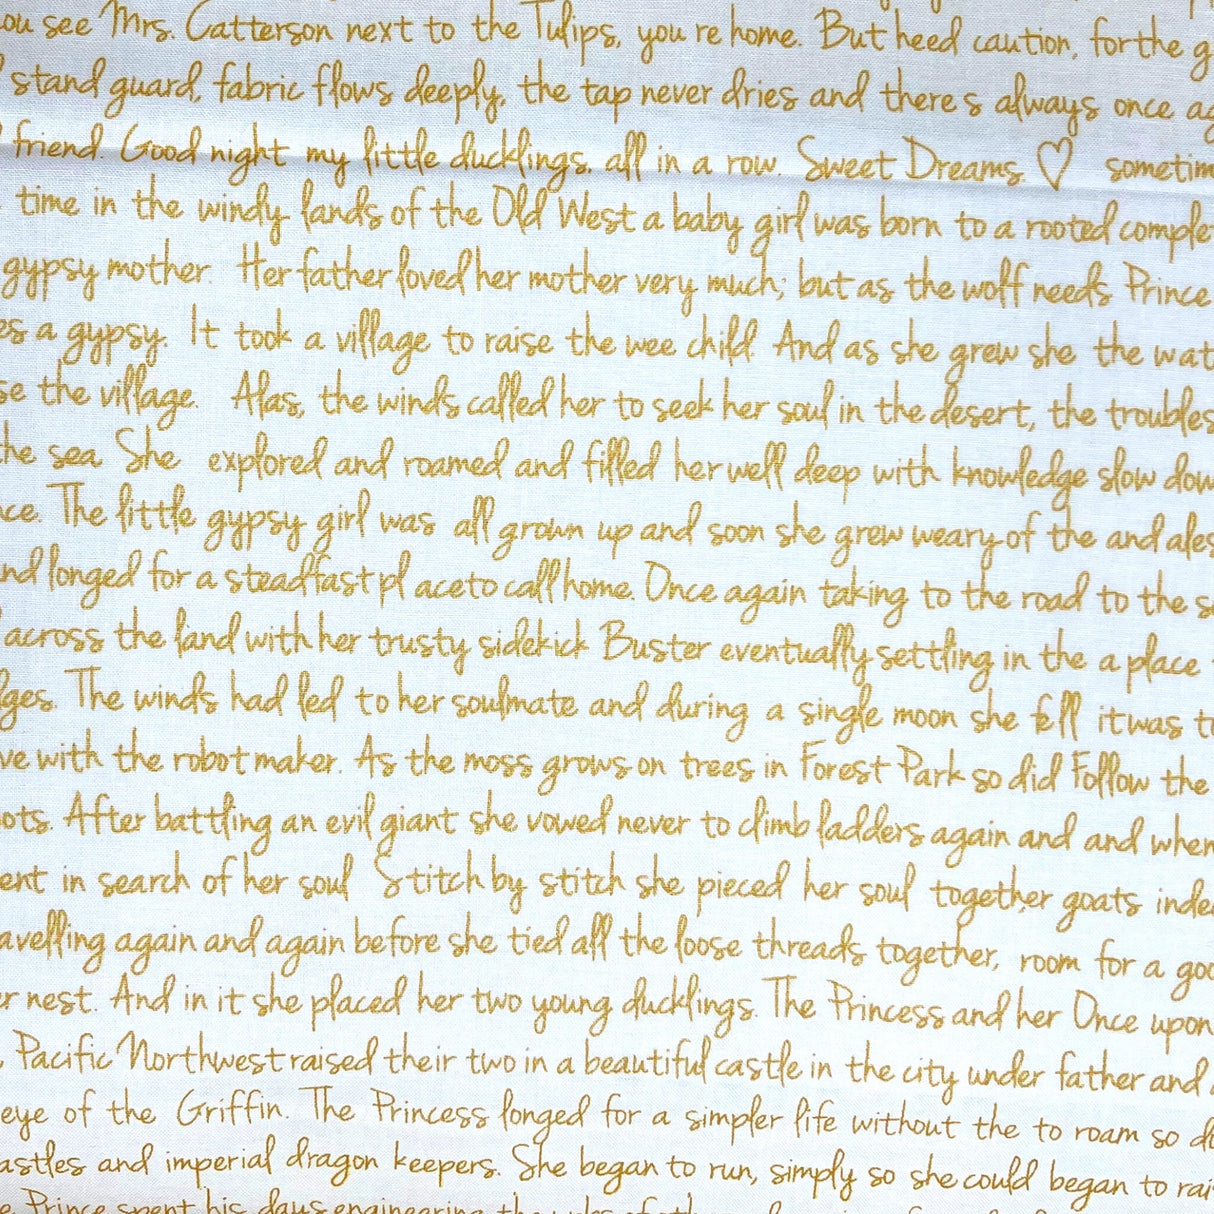 ou see Mrs. Catterson next to the Tulips, you re home. But heed caution, forthe g
stand guard, fabric flows deeply, the tap never dries and there s always once ag
friend. Good night my little ducklings, all in a row. Sweet Dreams ♡ sometim
time in the windy lands of the Old West a baby girl was born to a rooted comple
gypsy mother. Her father loved her mother very much; but as the wolf needs Prince
es a gypsy. It took a village to raise the wee child. And as she grew she the wat
se the village. Alas, the winds called her to seek her soul in the desert, the troubles
he sea. She explored and roamed and filled her well deep with knowledge slow dow
ce. The little gypsy girl was all grown up and soon she grew weary of the and ales
nd longed for a steadfast pl aceto call home. Once again taking to the road to the s
across the land with her trusty sidekick Buster eventually settling in the a place
ges. The winds had led to her soulmate and during a single moon she fell it was to
ve with the robot maker. As the moss grows on trees in Forest Park so did Follow the
ots. After battling an evil giant she vowed never to climb ladders again and and when
ent in search of her soul Stitch by stitch she pieced her soul together goats inde
avelling again and again before she tied all the loose threads together, room for a goo
r nest. And in it she placed her two young ducklings. The Princess and her Once upon
Pacific Northwest raised their two in a beautiful castle in the city under father and
eye of the Griffin. The Princess longed for a simpler life without the to roam so d
astles and imperial dragon keepers. She began to run, simply so she could began to rai
e Prince spent his days engineering